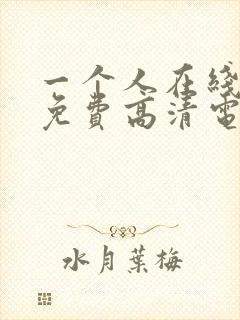 一个人在线
免费高清电
水月葉梅